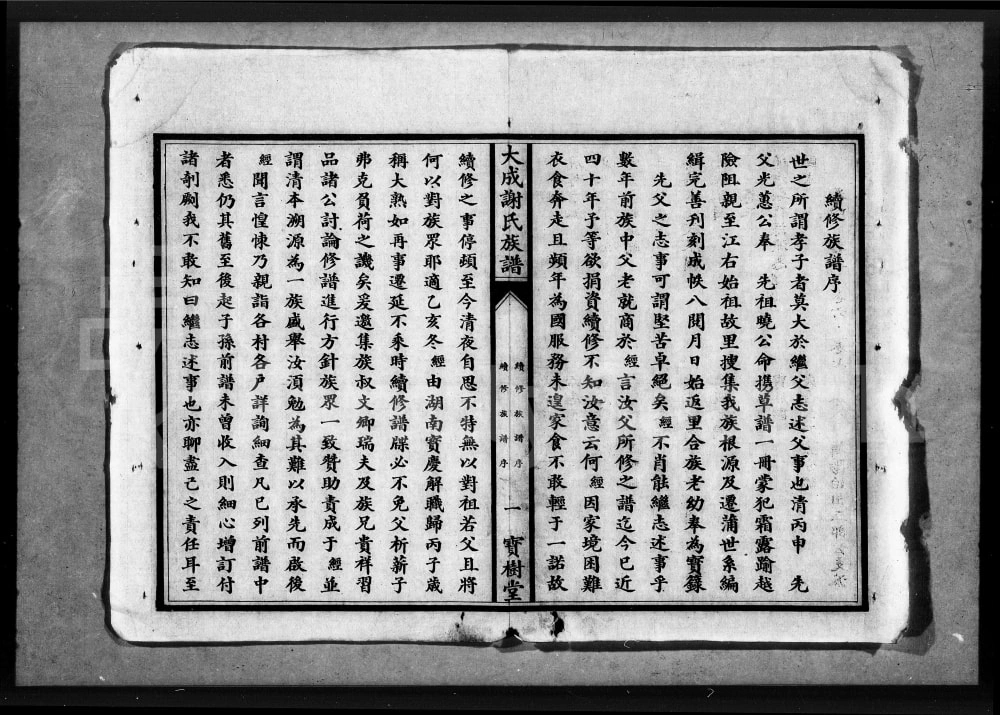 續修族譜序
世之所謂孝子者莫大於繼父志述父事也清丙申　先
父光蕙公奉　先祖曉公命携草譜一冊蒙犯霜露踰越
險阻親至江右始祖故里搜集我族根源及遷蒲世系編
緝完善刊刻成帙八閱月日始返里合族老幼奉為寶籙
先父之志事可謂堅苦卓絕矣經不肖能繼志述事乎
數年前族中父老就商於經言汝父所修之譜迄今已近
四十年予等欲捐資續修不知汝意云何經因家境困難
衣食奔走且頻年為國服務未遑家食不敢輕于一諾故
大成謝氏族譜
續修族譜序
續修族譜序
一
寶樹堂
續修之事停頓至今清夜自思不特無以對祖若父且將
何以對族眾耶適乙亥冬經由湖南寶慶解職歸丙子歲
稱大熟如再事遷延不乘時續修譜牒必不免父析薪子
弗克負荷之譏矣爰邀集族叔文卿瑞夫及族兄貴祥習
品諸公討論修譜進行方針族眾一致贊助責成于經並
謂清本溯源為一族盛舉汝須勉為其難以承先而啟後
經聞言惶悚乃親詣各村各户詳詢細查凡已列前譜中
者悉仍其舊至後起子孫前譜未曾收入則細心增訂付
諸剞劂我不敢知曰繼志述事也亦聊盡己之責任耳至